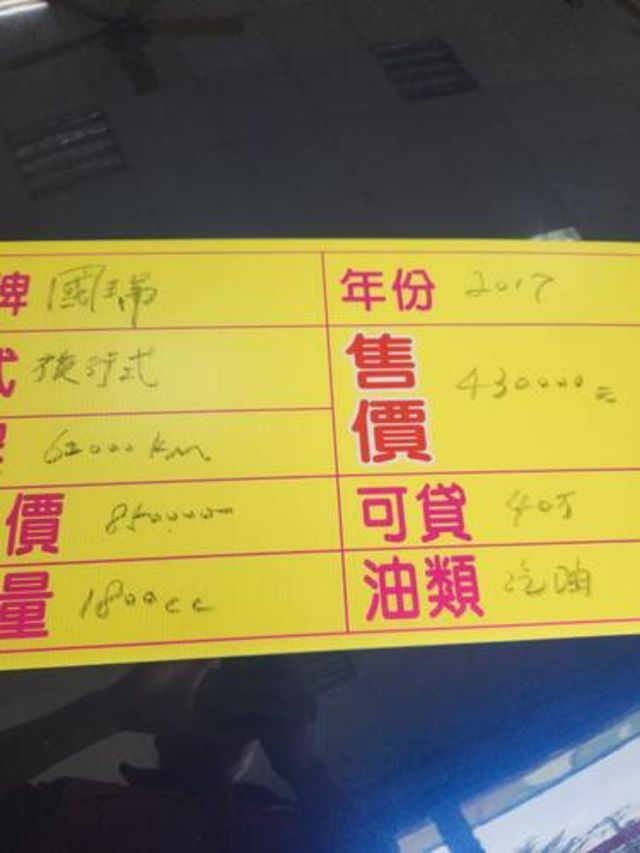 牌 國瑞 年份 2017
式 旅行式
售價 430000元
62000 km
價 850000 可貸 40万
量 1800cc 油類 汽油